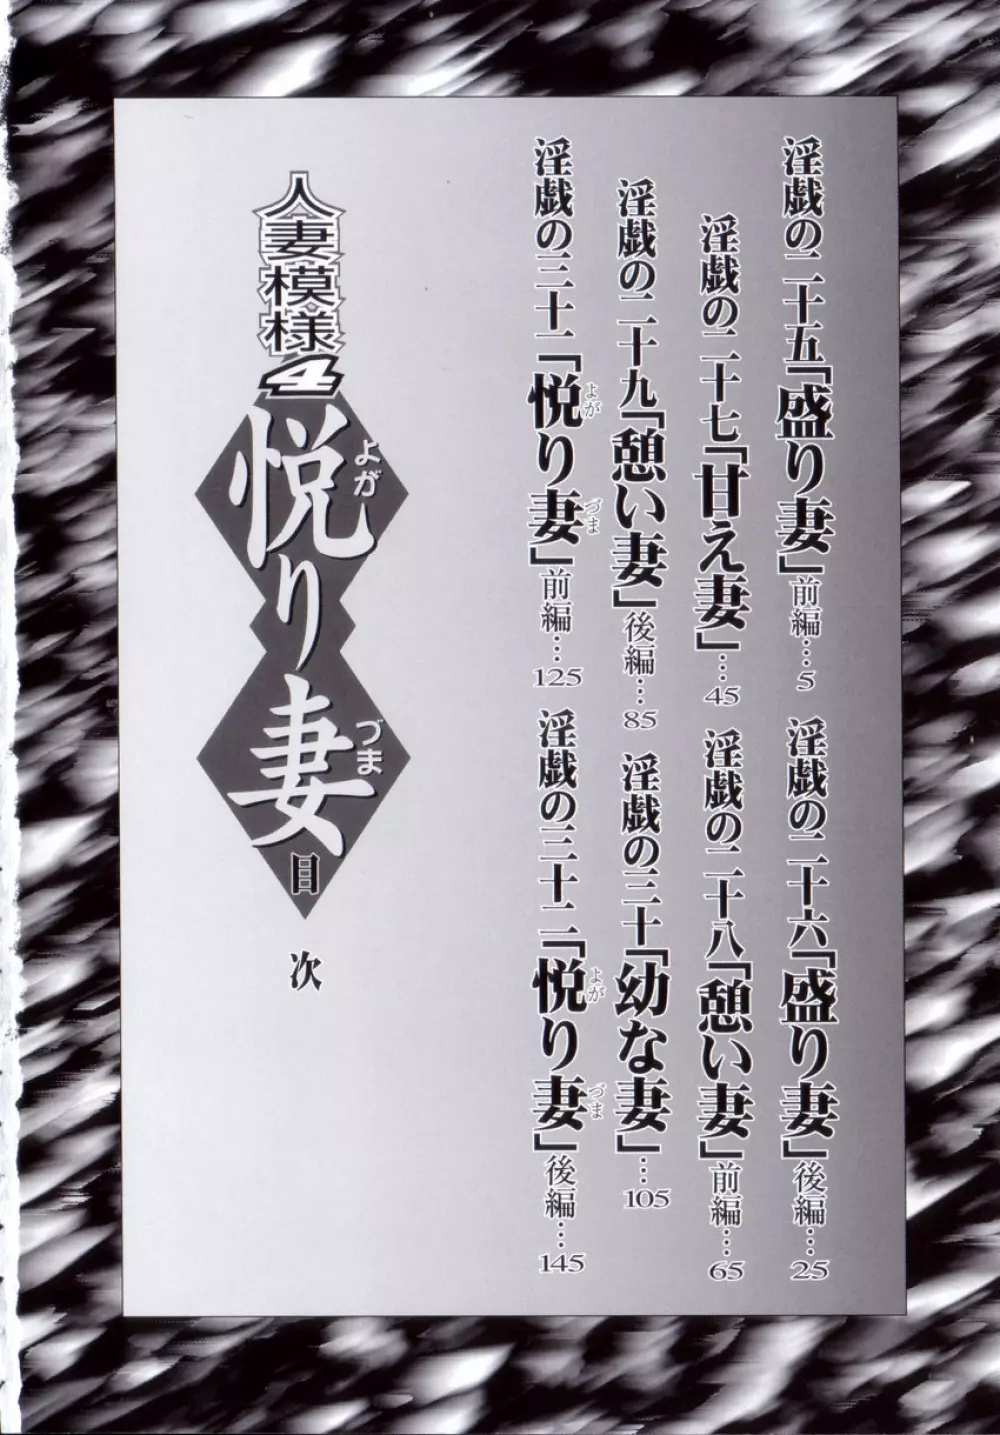 淫戯の二十五「盛り妻」前編…5
淫戯の二十六「盛り妻」後編…25
淫戯の二十七「甘え妻」…45
淫戯の二十八「憩い妻」前編…65
淫戯の二十九「憩い妻」後編…85
淫戯の三十「幼な妻」…105
淫戯の三十一「悦り妻」前編…125
よが づま
淫戯の三十二「悦り妻」後編…145
よが づま
人妻模様4
悦り妻
よが づま
目次